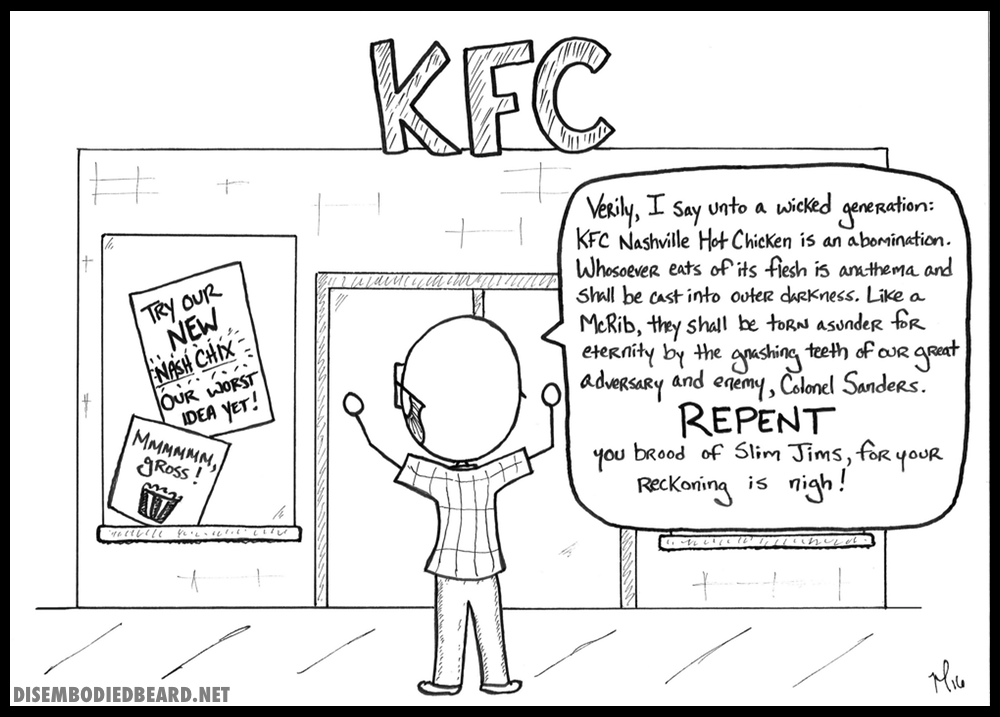 KFC
TRY OUR
NEW
NASH CHIX
OUR WORST
IDEA YET!
MMMMMMM,
gROSS!
Verily, I say unto a wicked generation:
KFC Nashville Hot Chicken is an abomination.
Whosoever eats of its flesh is anathema and
shall be cast into outer darkness. Like a
McRib, they shall be torn asunder for
eternity by the gnashing teeth of our great
adversary and enemy, Colonel Sanders.
REPENT
you brood of Slim Jims, for your
Reckoning is nigh!
DISEMBODIEDBEARD.NET